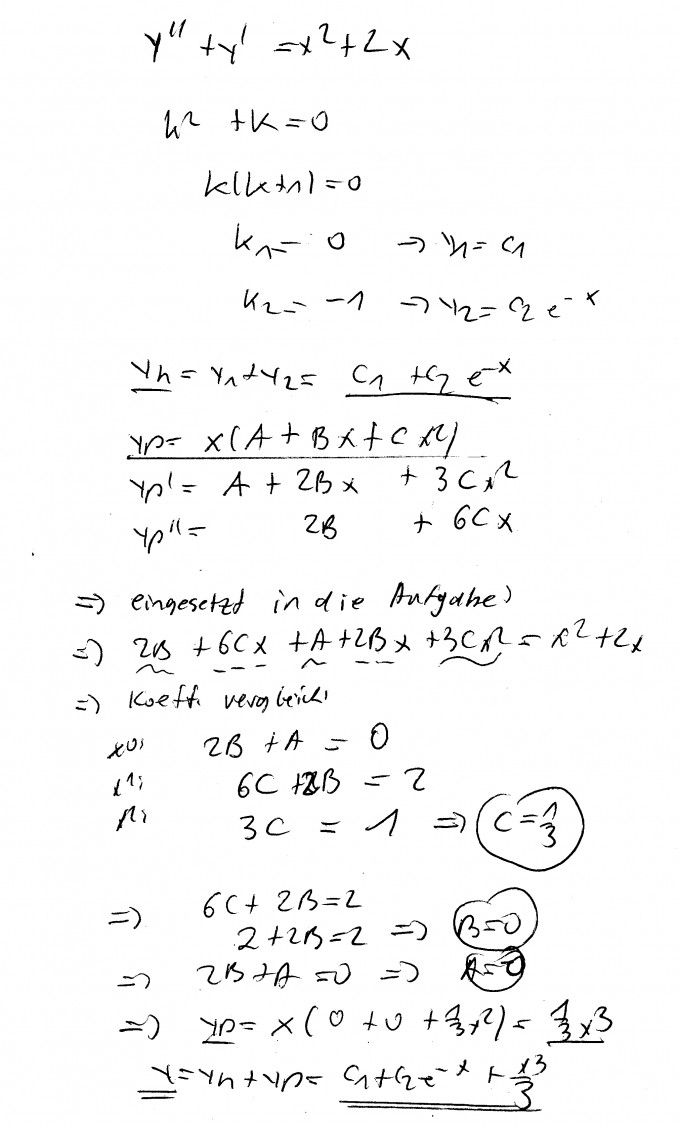 y'' + y' = x² + 2x
k² + k = 0
k(k+1) = 0
k₁ = 0 ⇒ y₁ = C₁
k₂ = -1 ⇒ y₂ = C₂ e^-x
yh = y₁ + y₂ = C₁ + C₂ e^-x
yp = x(A + Bx + Cx²)
yp' = A + 2Bx + 3Cx²
yp'' = 2B + 6Cx
⇒ eingesetzt in die Aufgabe:
⇒ 2B + 6Cx + A + 2Bx + 3Cx² = x² + 2x
⇒ Koeff. vergleich:
x⁰: 2B + A = 0
x¹: 6C + 2B = 2
x²: 3C = 1 ⇒ C = 1/3
⇒ 6C + 2B = 2
2 + 2B = 2 ⇒ B = 0
⇒ 2B + A = 0 ⇒ A = 0
⇒ yp = x(0 + 0 + 1/3 x²) = 1/3 x³
y = yh + yp = C₁ + C₂ e^-x + x³/3